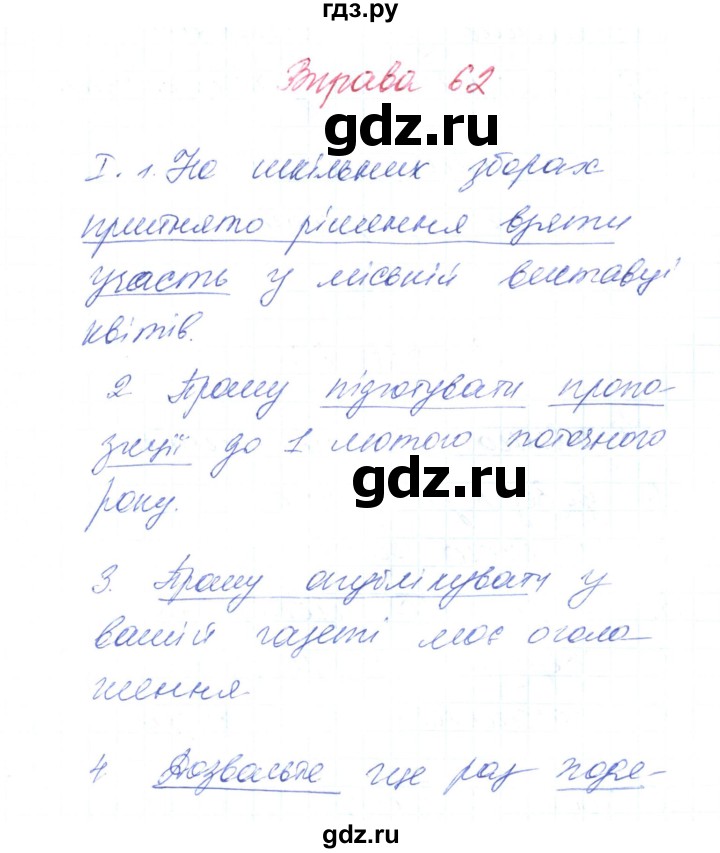 гдз.ру
Вправа 62
gdz.ru
I. 1. На шкільних зборах
прийнято рішення взяти
участь у міській виставці
квітів.
2 Прошу підготувати пропо-
зиції до 1 лютого поточного
gdz.ru
року.
3. Прошу опублікувати у
вашій газеті моє оголо
шення
4 Дозвольте ще раз
gdz.ru